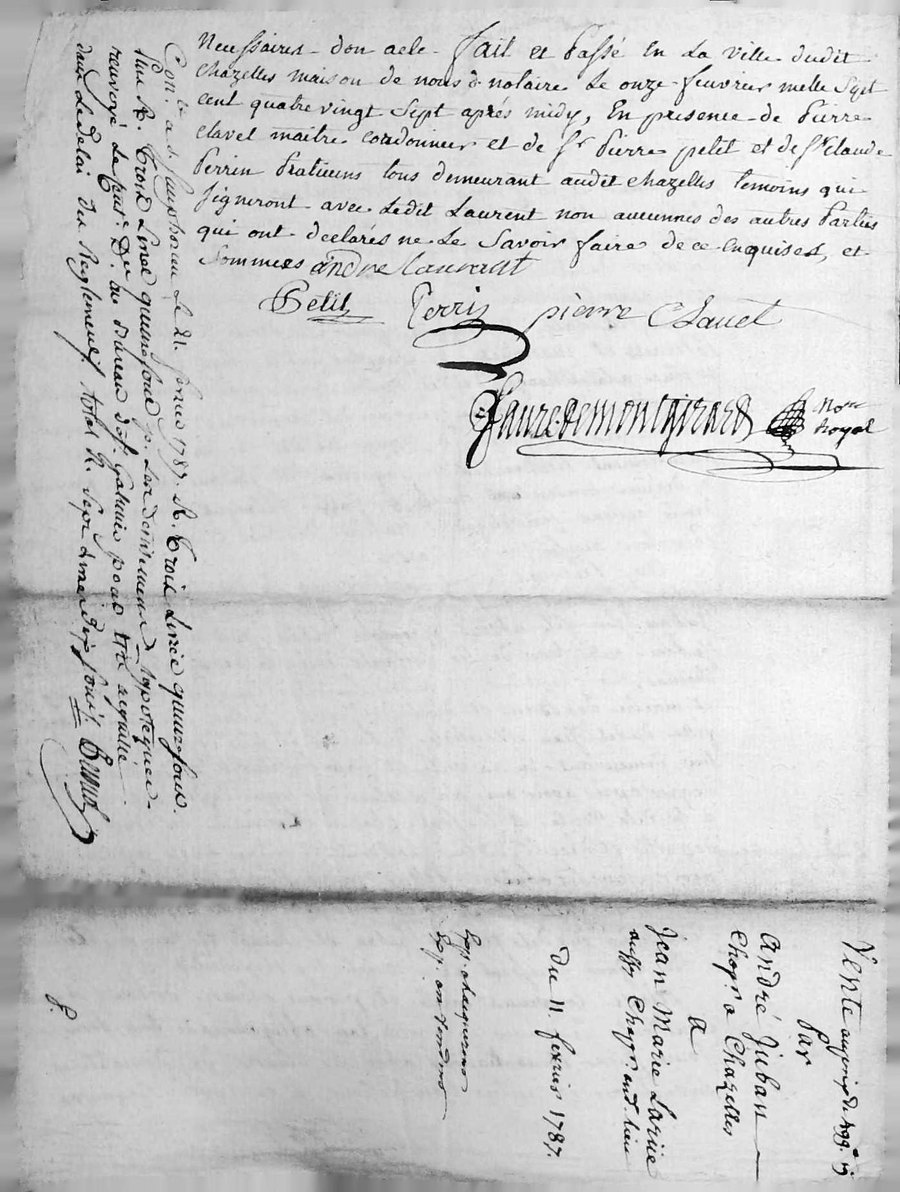 Necessaires - don acte - fait et Passé En La ville dudit
Chazelles maison de nous d. notaire Le onze feuvrier melle Sept
cent quatre vingt Sept après midy, En presence de Pierre
Clavel maitre cordonnier et de Sr Pierre petit et de Sr Claude
Perrin Praticiens tous demeurant audit Chazelles temoins qui
Signeront avec Ledit Laurent non aucunnes des autres Parties
qui ont declarés ne Le Savoir faire de ce Enquised, et
Sommees andre laurent
Petit Perrin pierre Clavel
faure demontgirard Nore
Royal
Con.le a St Simphorien Le 21. 1787. R. Trois Livres quinze Sous.
R. Trois Livres quinze Sous
renvoyé Le au Bureau de St Galmier pour
dans Le delai du Reglement. total R. Sept Livres dix Sous.
Vente au prix de 499
Par
André Juban
Chap.r a Chazelles
a
Jean Marie
aussy Chap.r aud. lieu
Du 11. fevrier 1787.
Exp.
Exp. au vendeur